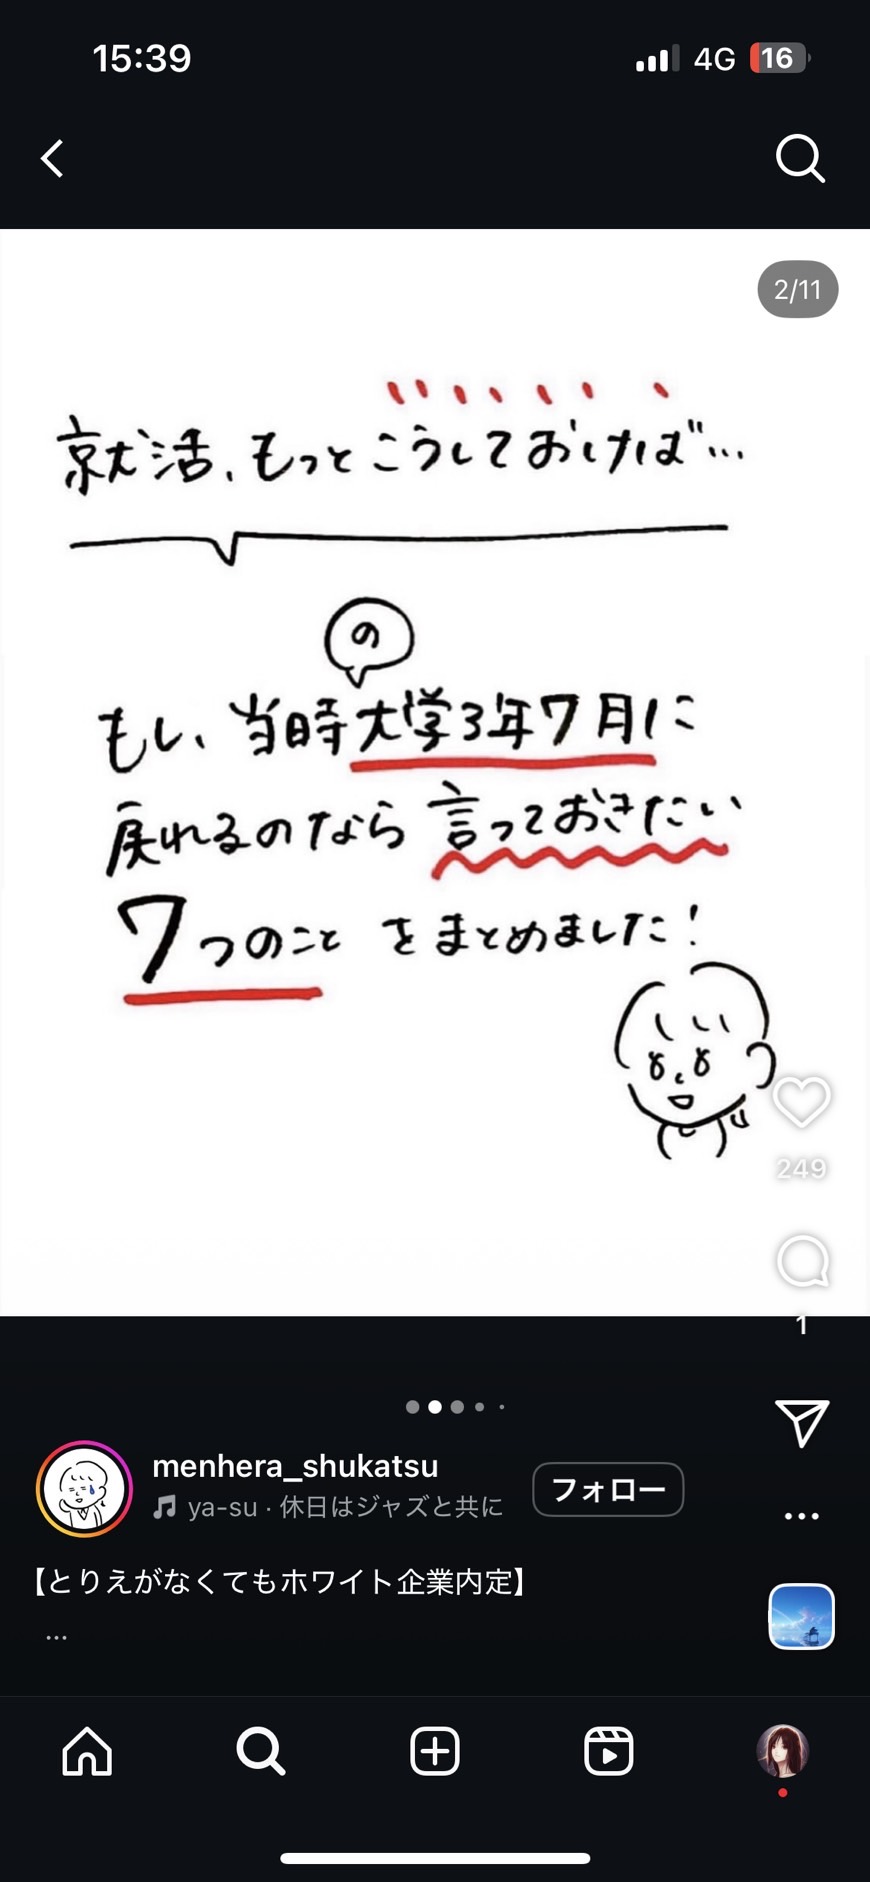 15:39
4G
16
2/11
就活、もっとこうしておけば…
の
もし、当時大学3年7月に
戻れるのなら言っておきたい
7つのことをまとめました!
249
1
menhera_shukatsu
ya-su · 休日はジャズと共に
フォロー
【とりえがなくてもホワイト企業内定】
...